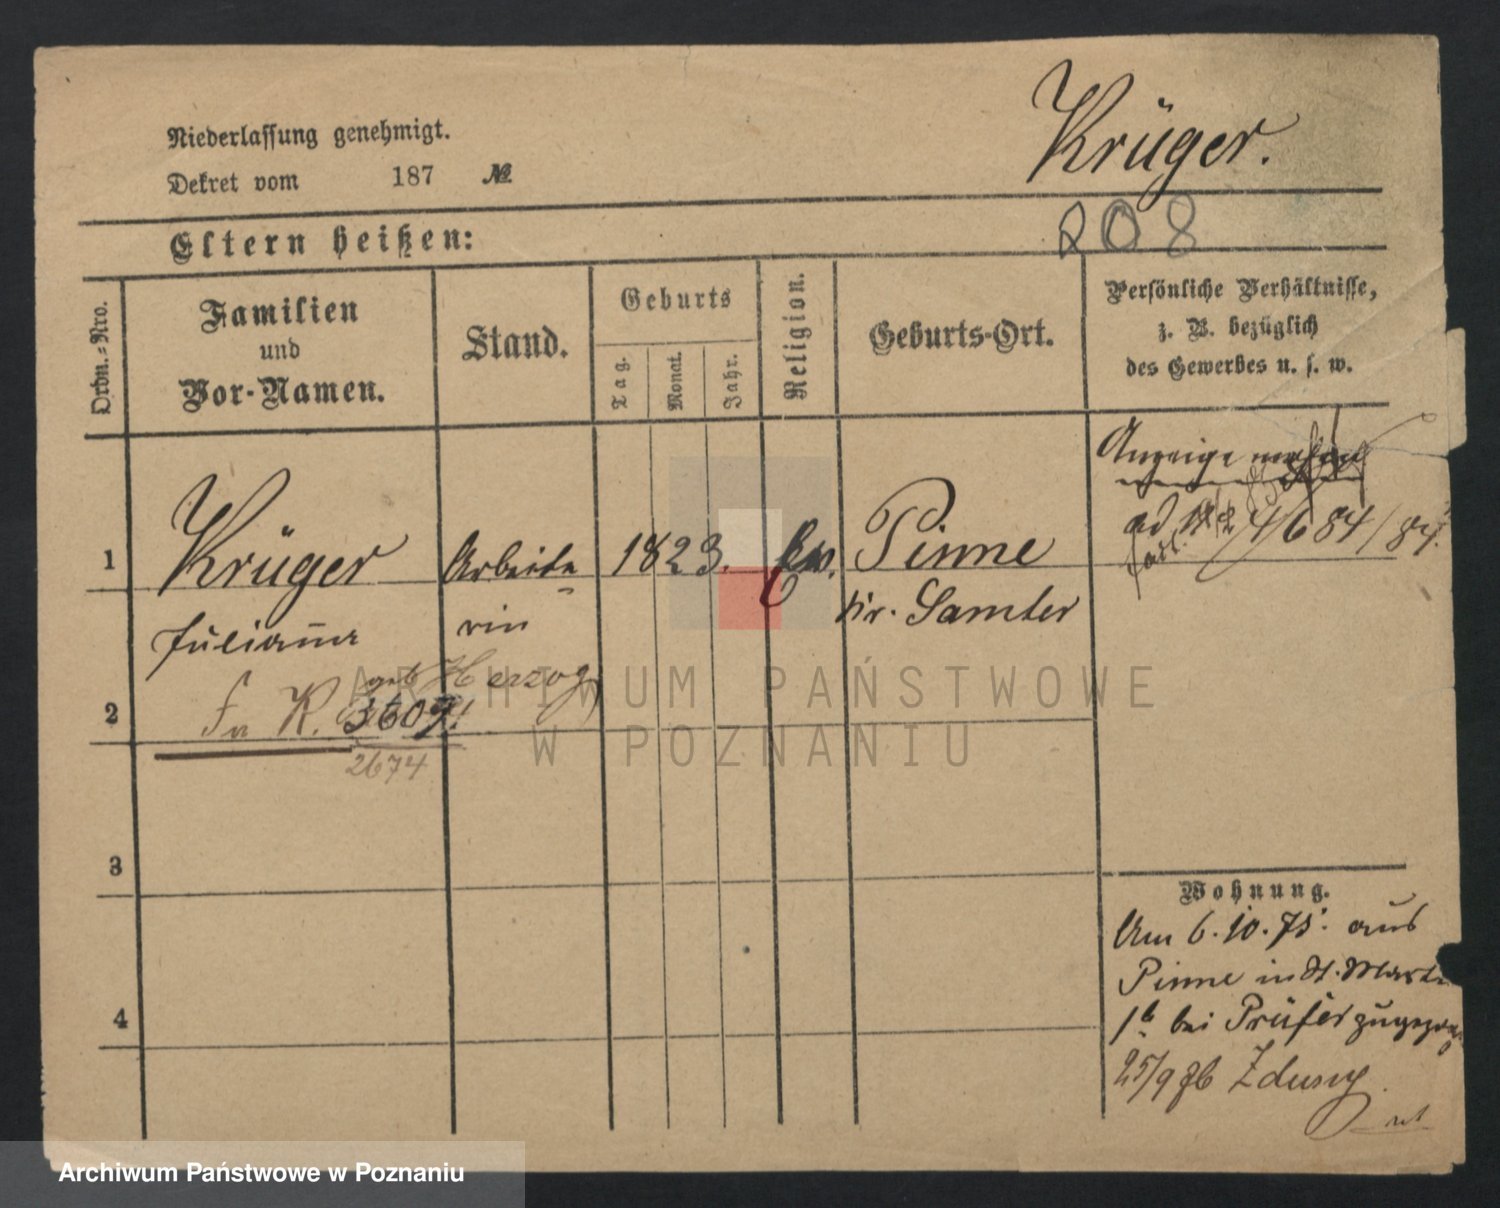 Krüger.
Niederlassung genehmigt.
Dekret vom 187 №
208
Eltern heißen:
Ordn.-Nro.
Familien
und
Vor-Namen.
Stand.
Geburts
Tag.
Monat.
Jahr.
Religion.
Geburts-Ort.
Persönliche Verhältnisse,
z. B. bezüglich
des Gewerbes u. s. w.
Anzeige
ad 4/684/84.
1 Krüger Arbeite 1823. ev. Pinne
Juliana rin Kr. Samter
geb Herzog
2 K. 3609!
2674
3
4
Wohnung.
Am 6.10.75. aus
Pinne in St. Martin
1b bei Prüfer
25/9 Zduny
ARCHIWUM PAŃSTWOWE
W POZNANIU
Archiwum Państwowe w Poznaniu